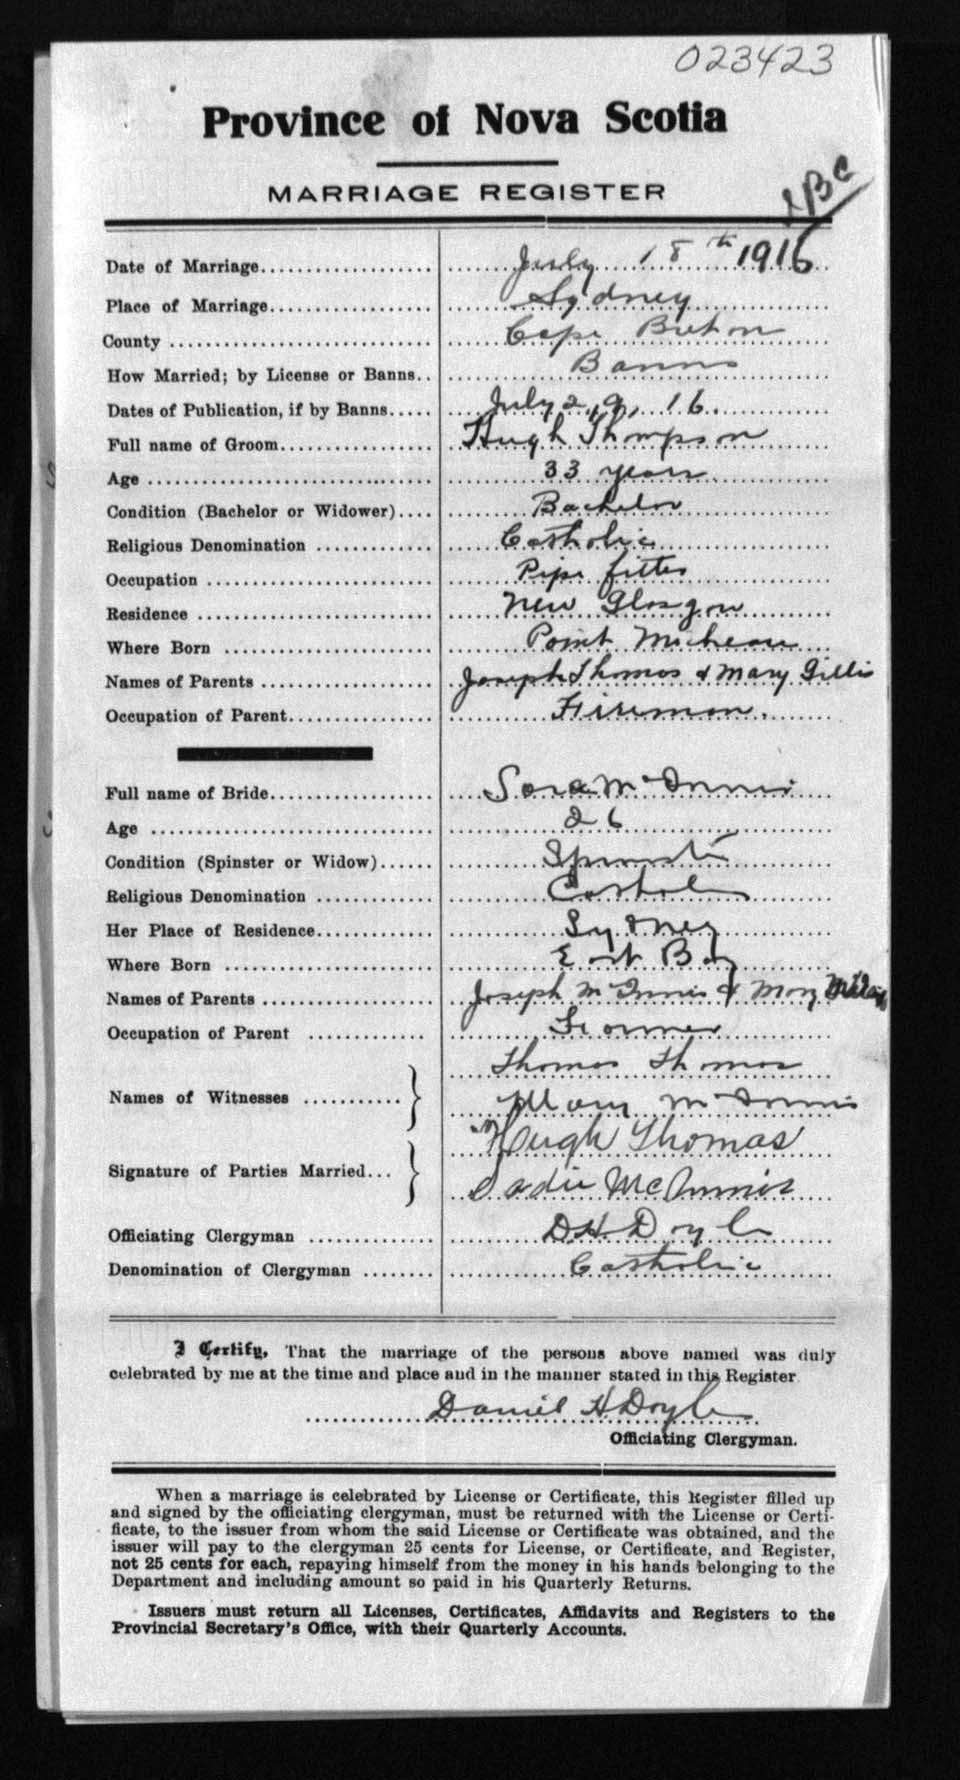 023423
Province of Nova Scotia
MARRIAGE REGISTER
Date of Marriage.................. July 18th 1916
Place of Marriage.................. Sydney
County ............................ Cape Breton
How Married; by License or Banns.. Banns
Dates of Publication, if by Banns..... July 2, 9, 16.
Full name of Groom................. Hugh Thompson
Age ................................ 33 years
Condition (Bachelor or Widower).... Bachelor
Religious Denomination ............ Catholic
Occupation ........................ Pipe fitter
Residence ......................... New Glasgow
Where Born ........................ Point Micheau
Names of Parents .................. Joseph Thomas & Mary Gillis
Occupation of Parent............... Fireman.
Full name of Bride................. Sara McInnis
Age ................................ 26
Condition (Spinster or Widow)...... Spinster
Religious Denomination ............ Catholic
Her Place of Residence............. Sydney
Where Born ........................ East Bay
Names of Parents .................. Joseph McInnis & Mary
Occupation of Parent ............. Farmer
Thomas Thomas
Names of Witnesses ...........}
Mary McInnis
Hugh Thomas
Signature of Parties Married...}
Sadie McInnis
Officiating Clergyman ............. D H Doyle
Denomination of Clergyman ........ Catholic
I Certify, That the marriage of the persons above named was duly
celebrated by me at the time and place and in the manner stated in this Register
Daniel H Doyle
Officiating Clergyman.
When a marriage is celebrated by License or Certificate, this Register filled up
and signed by the officiating clergyman, must be returned with the License or Certi-
ficate, to the issuer from whom the said License or Certificate was obtained, and the
issuer will pay to the clergyman 25 cents for License, or Certificate, and Register,
not 25 cents for each, repaying himself from the money in his hands belonging to the
Department and including amount so paid in his Quarterly Returns.
Issuers must return all Licenses, Certificates, Affidavits and Registers to the
Provincial Secretary's Office, with their Quarterly Accounts.